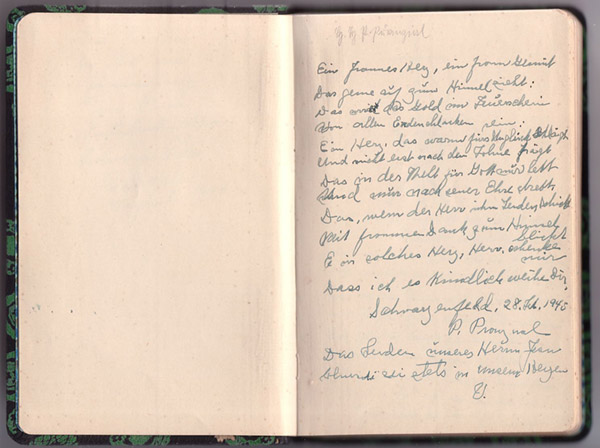 Ein frommes Herz, ein fromm Gemüt
Das gerne auf zum Himmel sieht:
Das wird als Gold im Feuerschein
Von allen Erdenschlacken rein:
Ein Herz, das warm fürs Unglück schlägt
Und nicht erst nach dem Lohne frägt
Das in der Welt für Gott nur lebt
Und nur nach seiner Ehre strebt
Das, wenn der Herr ihm Leiden schickt
Mit frommem Dank zum Himmel
blickt
Ein solches Herz, Herr, schenke
mir
Dass ich es kindlich weihe Dir,
Schwarzenfeld, 28. 1945
P.
Das Leiden unseres Herrn Jesu
Christi sei stets in unsern Herzen